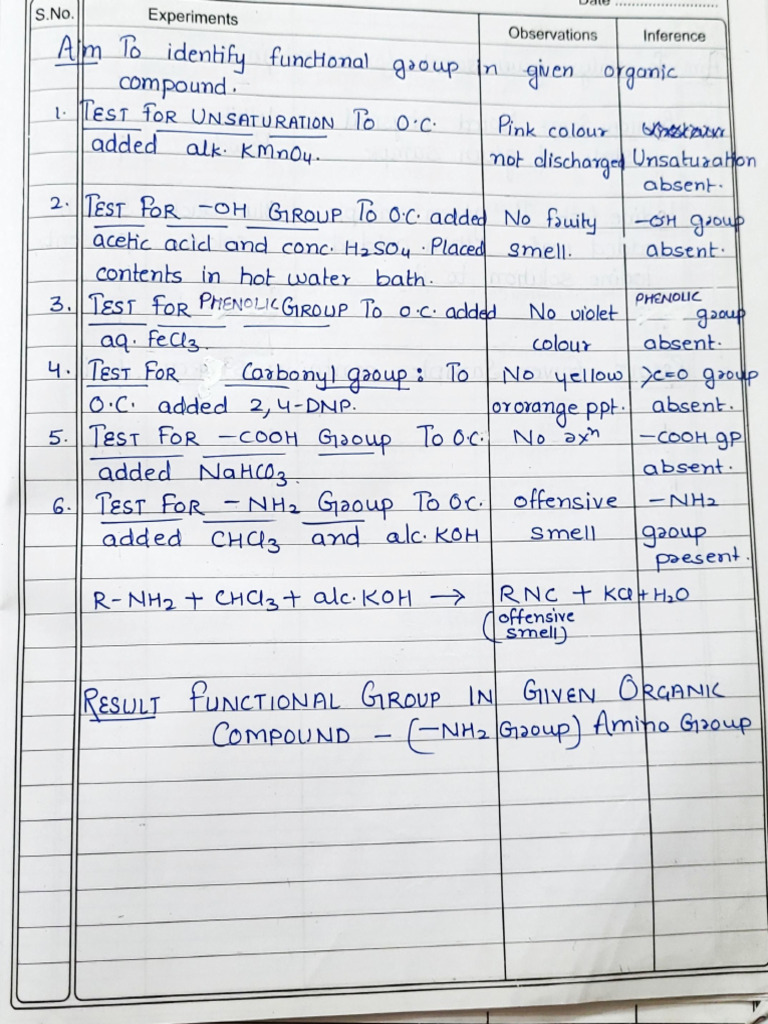 Date
S.No. Experiments Observations Inference
Aim To identify functional group in given organic
compound.
1. TEST FOR UNSATURATION To O.C. Pink colour
added alk. KMnO4. not discharged Unsaturation
absent.
2. TEST FOR -OH GROUP To O.C. added No fruity -OH group
acetic acid and conc. H2SO4. Placed smell. absent.
contents in hot water bath.
3. TEST FOR PHENOLIC GROUP To O.C. added No violet PHENOLIC group
aq. FeCl3. colour absent.
4. TEST FOR Carbonyl group: To No yellow >C=O group
O.C. added 2,4-DNP. or orange ppt. absent.
5. TEST FOR -COOH Group To O.C. No rxn -COOH gp
added NaHCO3. absent.
6. TEST FOR -NH2 Group To O.C. offensive -NH2
added CHCl3 and alc. KOH smell group
present.
R-NH2 + CHCl3 + alc. KOH → RNC + KCl + H2O
(offensive
smell)
RESULT FUNCTIONAL GROUP IN GIVEN ORGANIC
COMPOUND - (-NH2 Group) Amino Group